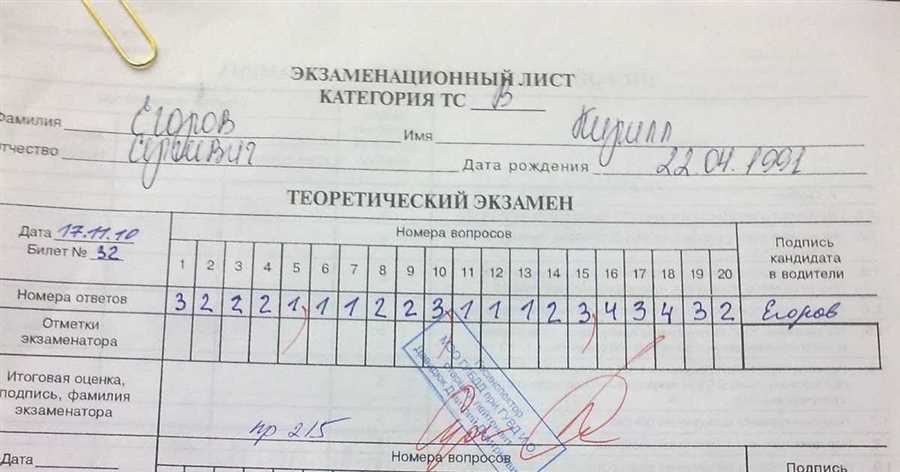 ЭКЗАМЕНАЦИОННЫЙ ЛИСТ
КАТЕГОРИЯ ТС В
Фамилия Егоров Имя Кирилл
Отчество Сергеевич Дата рождения 22.04.1991
ТЕОРЕТИЧЕСКИЙ ЭКЗАМЕН
Дата 17.11.10
Билет № 32
Номера вопросов
Подпись кандидата в водители
1 2 3 4 5 6 7 8 9 10 11 12 13 14 15 16 17 18 19 20
Номера ответов 3 2 2 2 1 1 1 2 2 3 1 1 1 2 3 4 3 4 3 2 Егоров
Отметки
экзаменатора
Итоговая оценка,
подпись, фамилия
экзаменатора
пр 215
МЭО ГИБДД при ГУВД ИО
Дата Номера вопросов Подпись